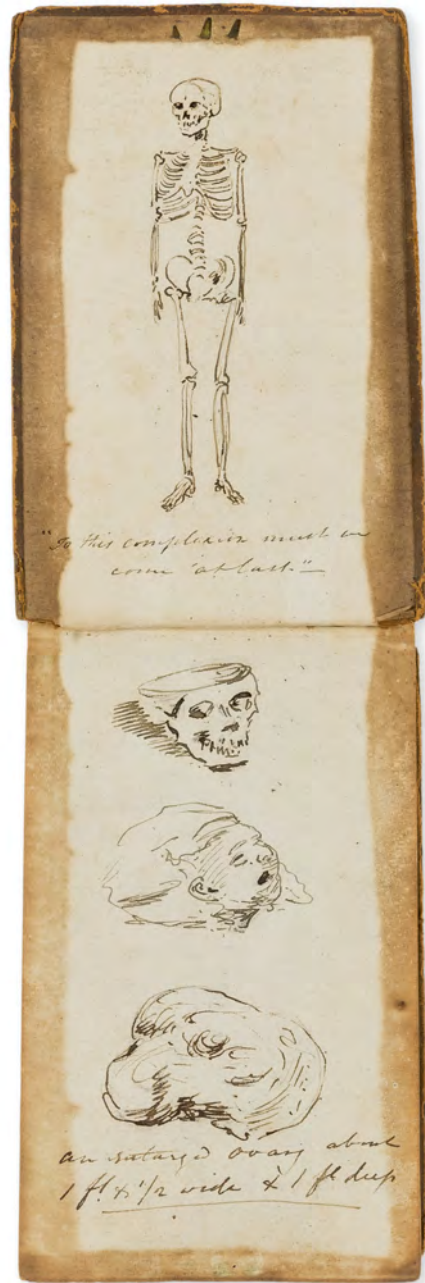 "To this complexion must we
come 'at last."
an enlarg'd ovary about
1 ft & 1/2 wide & 1 ft deep